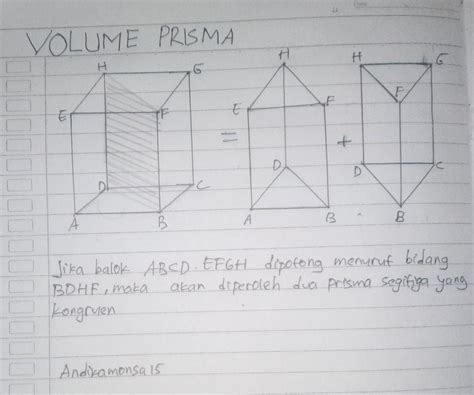 VOLUME PRISMA
H G H H G
E F E F F
= +
D C D D C
A B A B B
Jika balok ABCD.EFGH dipotong menurut bidang
BDHF, maka akan diperoleh dua prisma segitiga yang
kongruen
Andikamonsa15